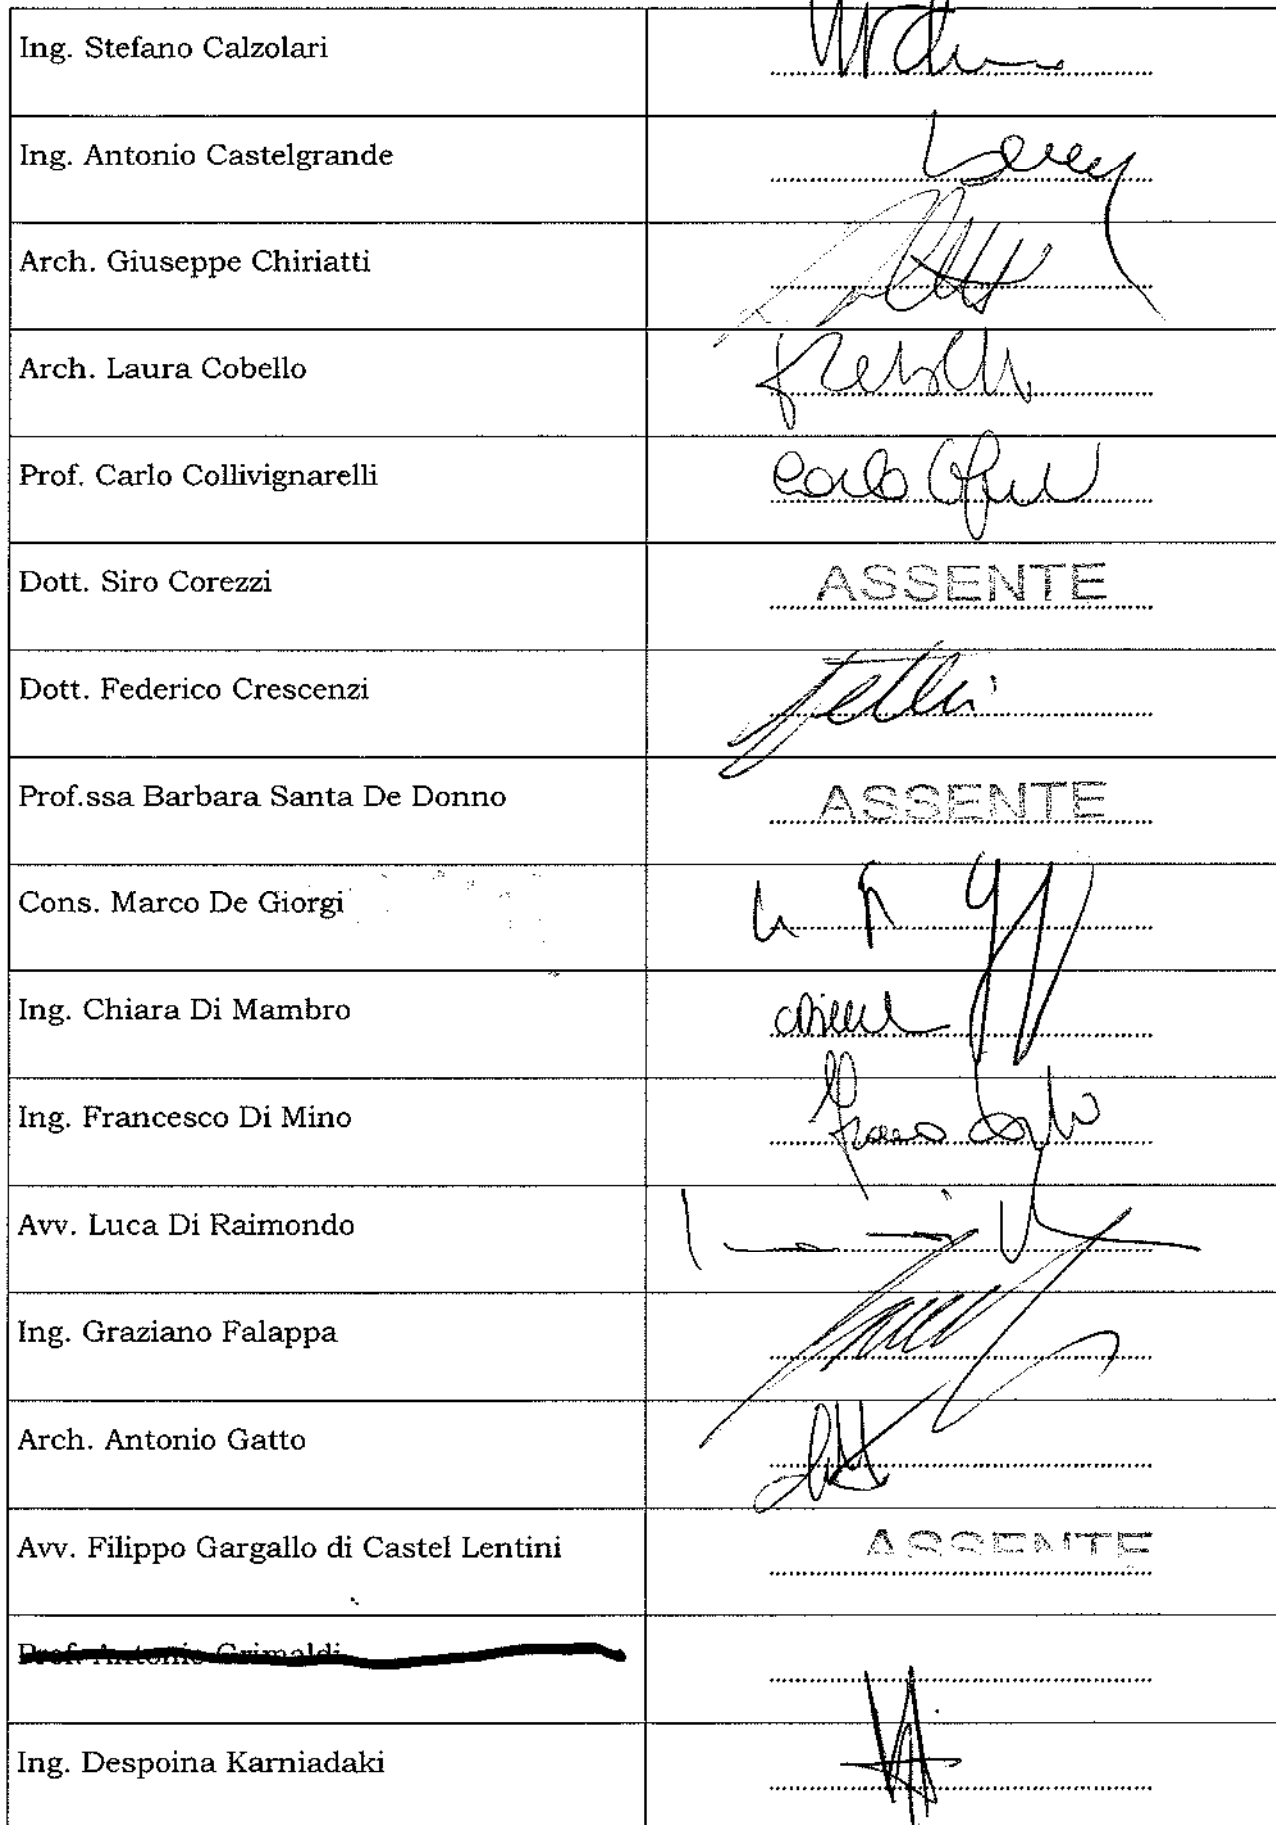 Ing. Stefano Calzolari
Ing. Antonio Castelgrande
Arch. Giuseppe Chiriatti
Arch. Laura Cobello
Prof. Carlo Collivignarelli
Dott. Siro Corezzi ASSENTE
Dott. Federico Crescenzi
Prof.ssa Barbara Santa De Donno ASSENTE
Cons. Marco De Giorgi
Ing. Chiara Di Mambro
Ing. Francesco Di Mino
Avv. Luca Di Raimondo
Ing. Graziano Falappa
Arch. Antonio Gatto
Avv. Filippo Gargallo di Castel Lentini ASSENTE
Prof. Antonio Grimaldi
Ing. Despoina Karniadaki